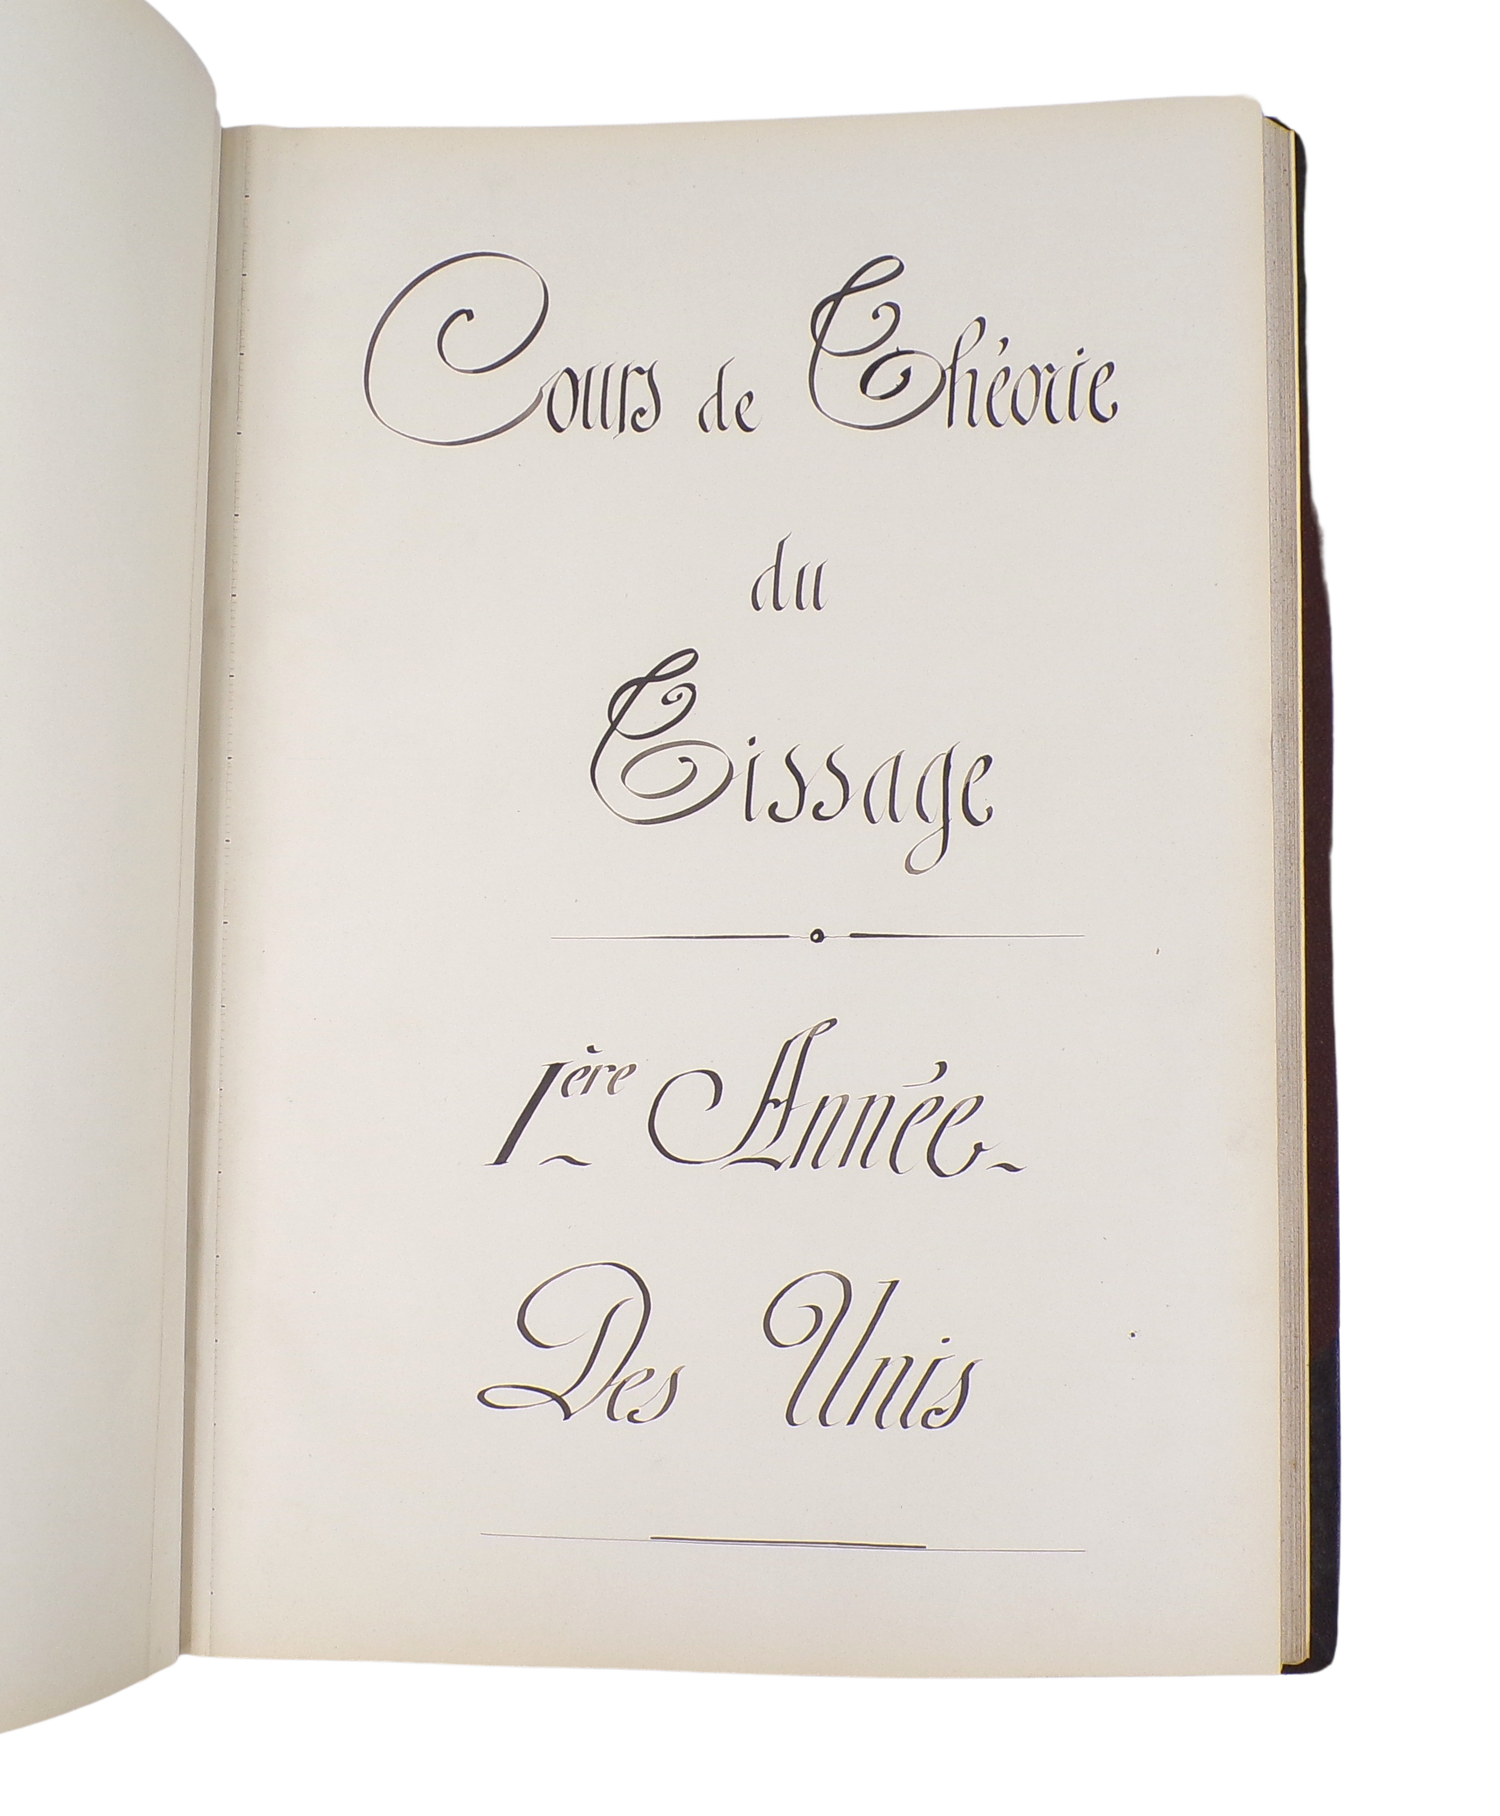 Cours de Théorie
du
Tissage
1ère Année
Des Unis